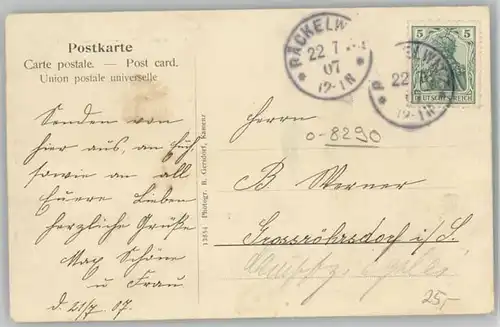 Postkarte
Carte postale. — Post card.
Union postale universelle
Senden von
hier aus, an Euch,
sowie an all
Euere Lieben
herzliche Grüße
Max Schöne
u Frau
d. 21/7 07.
13654 Photogr. R. Gersdorf, Kamenz
RÄCKELW
22 7
07
12-1N
5 5
DEUTSCHES REICH
ELWI
22
12-1N
Herrn
o-8290
B Werner
Grossröhrsdorf i/S.
25,-